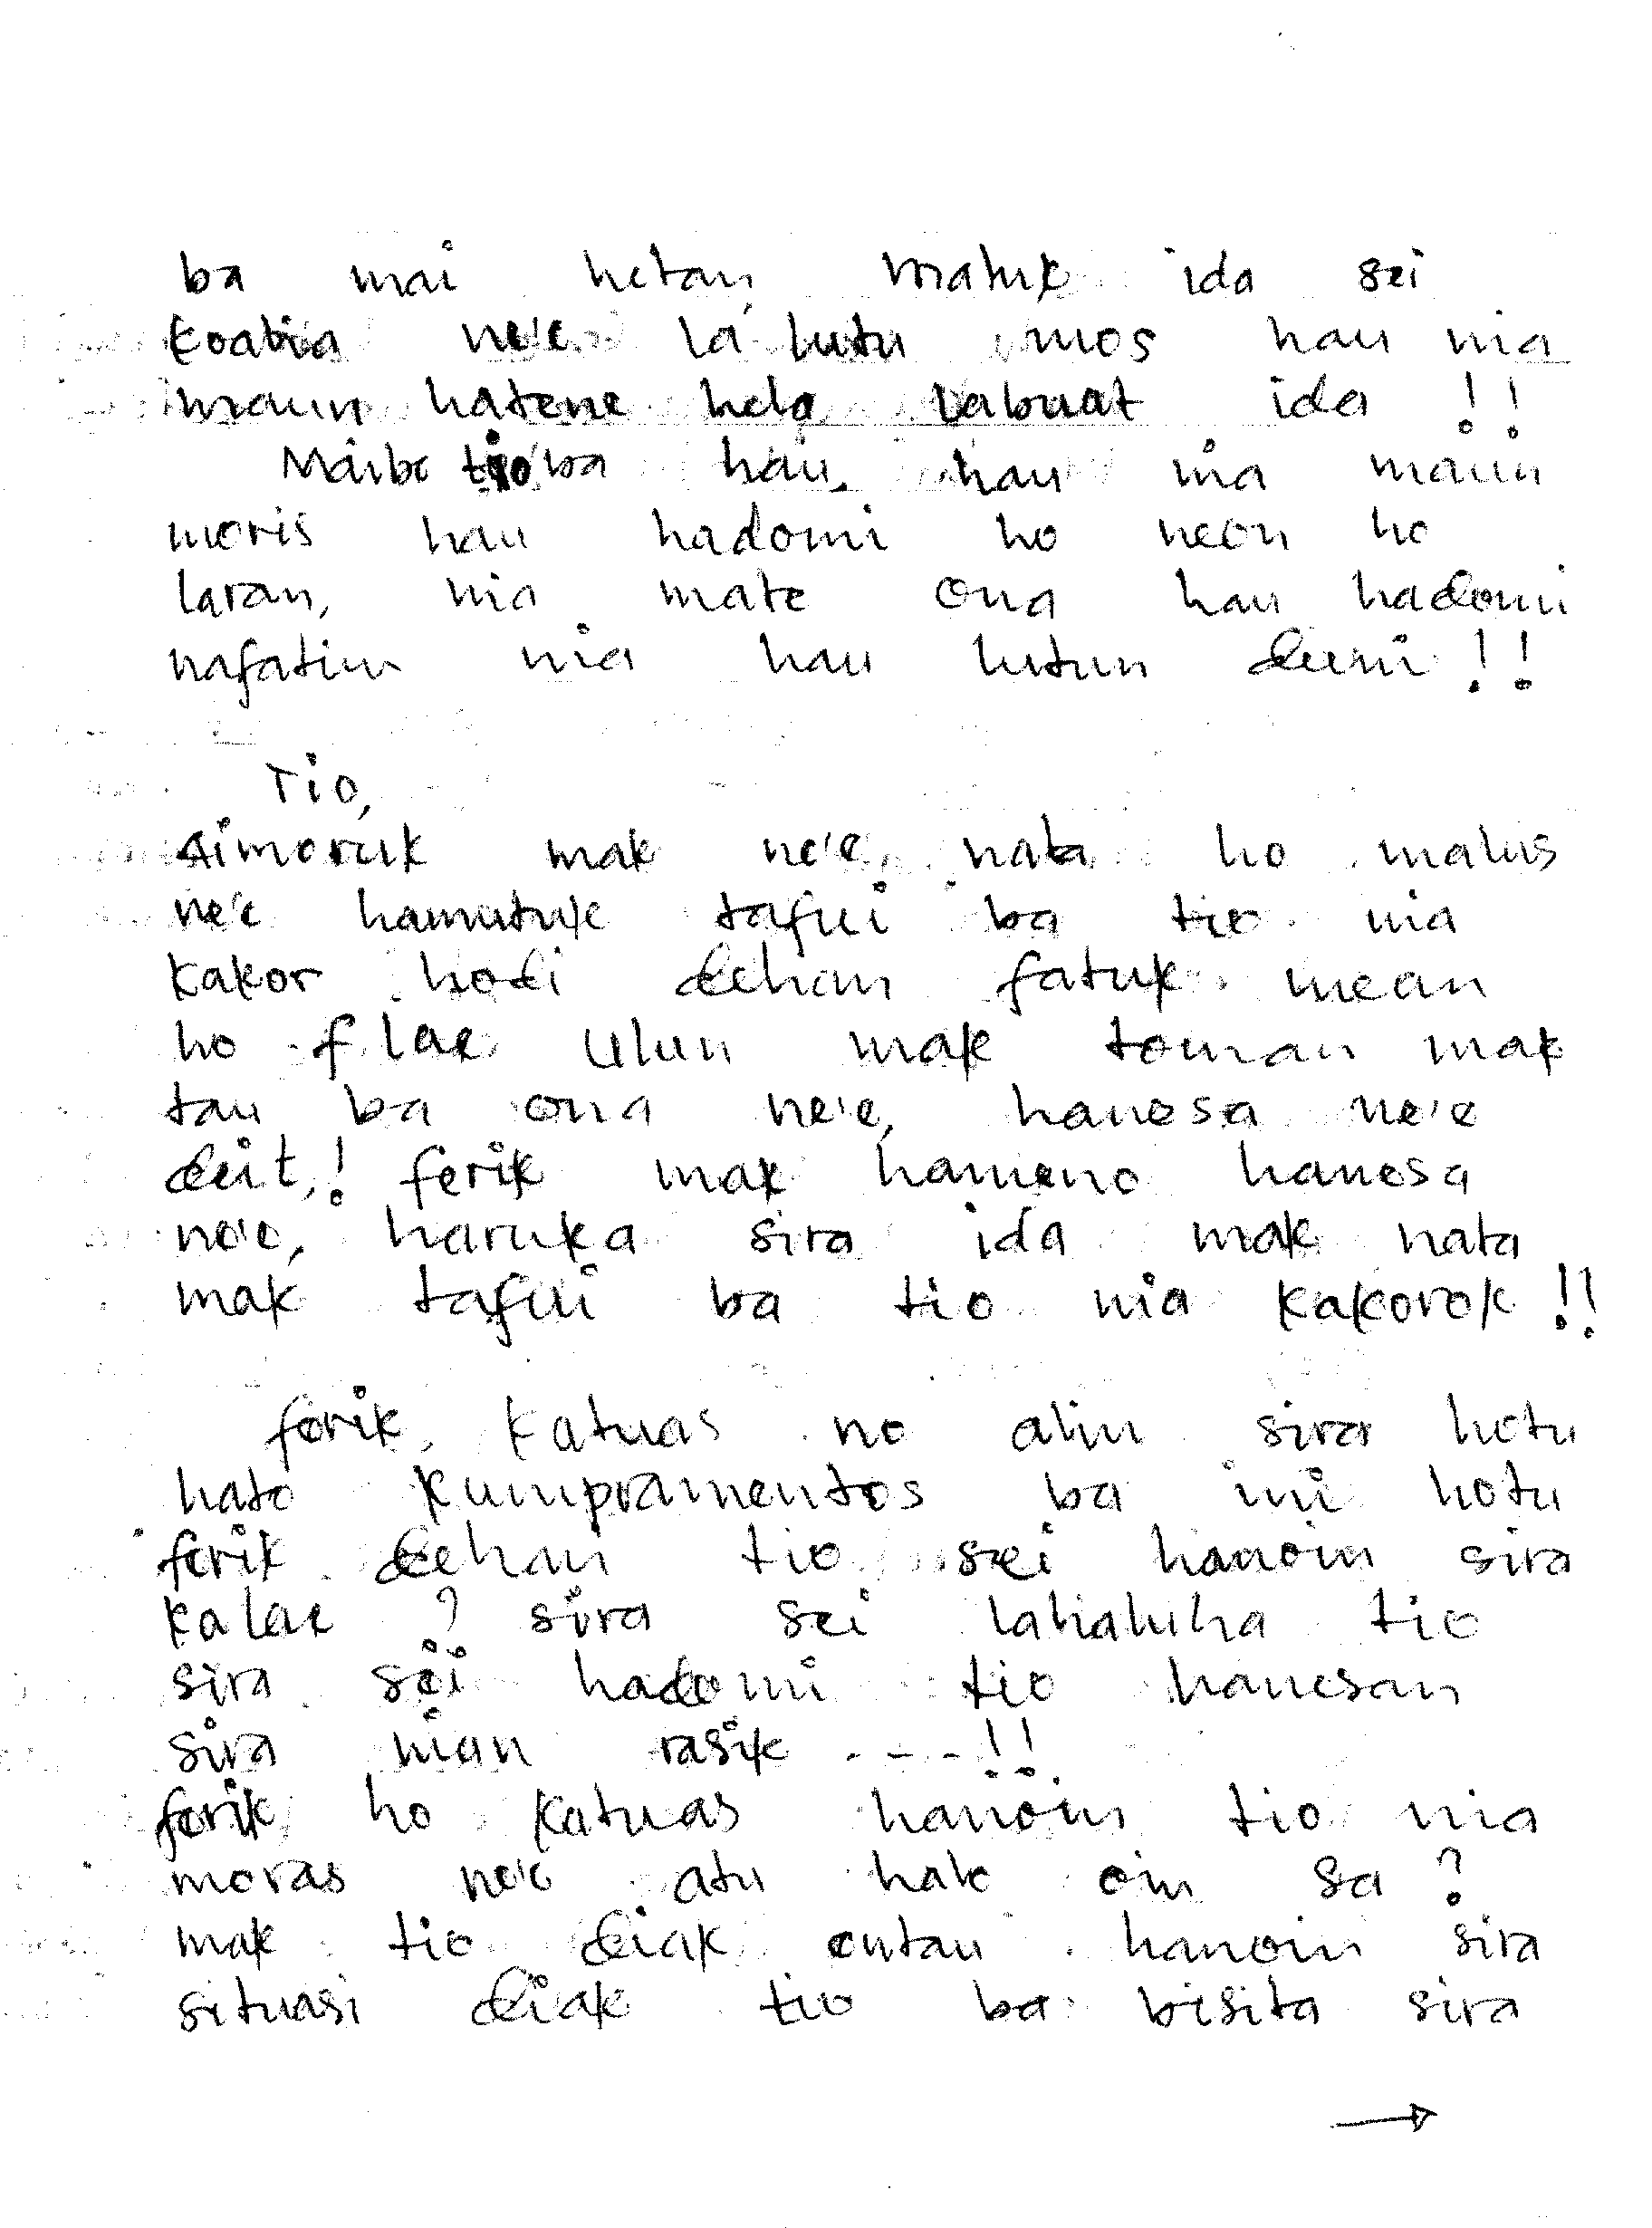 ba mai hetan matuk ida sei
koalia ne'e la lutu mos hau nia
maun hatene hela labuat ida !!
Maibe tio ba hau, hau nia maun
moris hau hadomi ho neon ho
laran, nia mate ona hau hadomi
nafatin nia hau lutun deini !!
Tio,
aimoruk mak ne'e, nata ho malus
ne'e hamutuk tafui ba tio nia
kakor hodi dehan fatuk mean
ho f lae ulun mak toman mak
tau ba ona ne'e, hanesa ne'e
deit,! ferik mak hameno hanesa
ne'e, haruka sira ida mak nata
mak tafui ba tio nia kakorok !!
ferik, katuas no alin sira hotu
hato kumpramentos ba imi hotu
ferik dehan tio sei hanoin sira
kalae ? sira sei lahaluha tio
sira sei hadomi tio hanesan
sira nian rasik ----!!
ferik ho katuas hanoin tio nia
moras ne'e atu halo oin sa ?
mak tio diak entau hanoin sira
situasi diak tio ba bisita sira
→